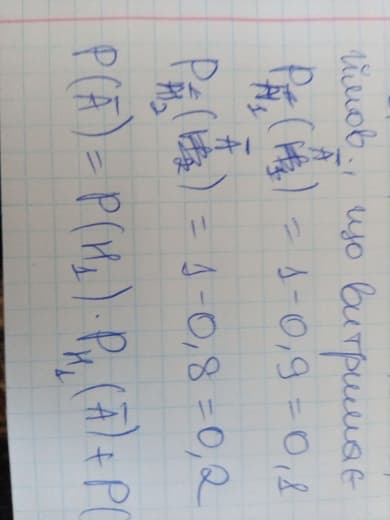 ймов., що витримає
P_H₁(Ā) = 1 - 0,9 = 0,1
P_H₂(Ā) = 1 - 0,8 = 0,2
P(Ā) = P(H₁) · P_H₁(Ā) + P(